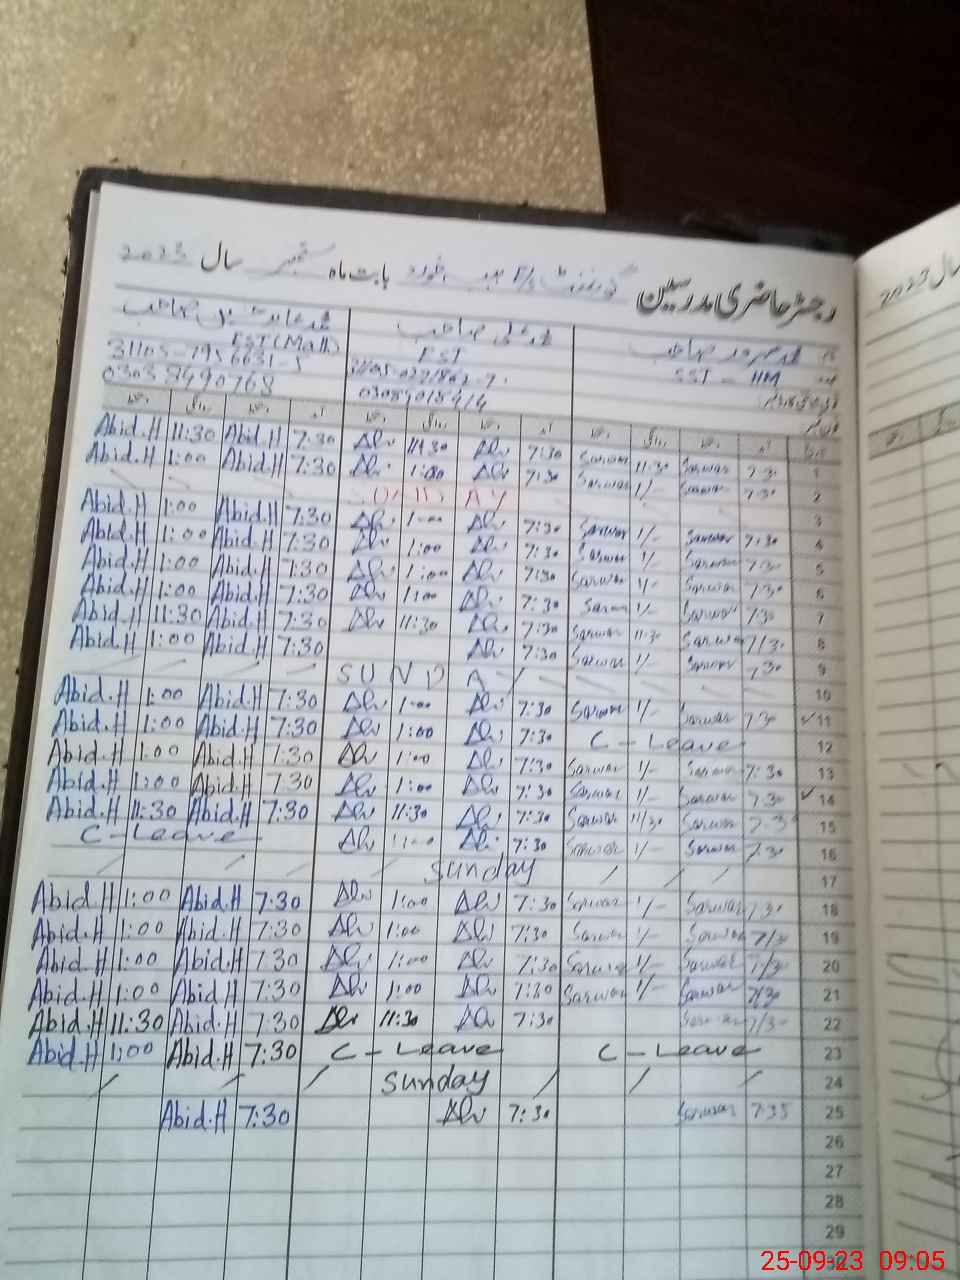 رجسٹر حاضری مدرسین گورنمنٹ بابت ماہ ستمبر سال 2023
صاحب
SST - HM EST EST (Math)
03038490768
Abid.H 11:30 Abid.H 7:30 Ali 11:30 Ali 7:30 Sarwar 11:30 Sarwar 7:30 1
Abid.H 1:00 Abid.H 7:30 Ali 1:00 Ali 7:30 Sarwar 1/- Sarwar 7:30 2
SUNDAY 3
Abid.H 1:00 Abid.H 7:30 Ali 1:00 Ali 7:30 Sarwar 1/- Sarwar 7:30 4
Abid.H 1:00 Abid.H 7:30 Ali 1:00 Ali 7:30 Sarwar 1/- Sarwar 7:30 5
Abid.H 1:00 Abid.H 7:30 Ali 1:00 Ali 7:30 Sarwar 1/- Sarwar 7:30 6
Abid.H 1:00 Abid.H 7:30 Ali 1:00 Ali 7:30 Sarwar 1/- Sarwar 7:30 7
Abid.H 11:30 Abid.H 7:30 Ali 11:30 Ali 7:30 Sarwar 11:30 Sarwar 7/30 8
Abid.H 1:00 Abid.H 7:30 Ali 7:30 Sarwar 1/- Sarwar 7:30 9
SUNDAY 10
Abid.H 1:00 Abid.H 7:30 Ali 1:00 Ali 7:30 Sarwar 1/- Sarwar 7:30 11
Abid.H 1:00 Abid.H 7:30 Ali 1:00 Ali 7:30 C - Leave 12
Abid.H 1:00 Abid.H 7:30 Ali 1:00 Ali 7:30 Sarwar 1/- Sarwar 7:30 13
Abid.H 1:00 Abid.H 7:30 Ali 1:00 Ali 7:30 Sarwar 1/- Sarwar 7:30 14
Abid.H 11:30 Abid.H 7:30 Ali 11:30 Ali 7:30 Sarwar 11/30 Sarwar 7:30 15
C - Leave Ali 1:00 Ali 7:30 Sarwar 1/- Sarwar 7:30 16
Sunday 17
Abid.H 1:00 Abid.H 7:30 Ali 1:00 Ali 7:30 Sarwar 1/- Sarwar 7:30 18
Abid.H 1:00 Abid.H 7:30 Ali 1:00 Ali 7:30 Sarwar 1/- Sarwar 7/30 19
Abid.H 1:00 Abid.H 7:30 Ali 1:00 Ali 7:30 Sarwar 1/- Sarwar 7/30 20
Abid.H 1:00 Abid.H 7:30 Ali 1:00 Ali 7:30 Sarwar 1/- Sarwar 7/30 21
Abid.H 11:30 Abid.H 7:30 Ali 11:30 Ali 7:30 Sarwar 7/30 22
Abid.H 1:00 Abid.H 7:30 C - Leave C - Leave 23
Sunday 24
Abid.H 7:30 Ali 7:30 Sarwar 7:35 25
26
27
28
29
30
سال 2023
25-09-23 09:05